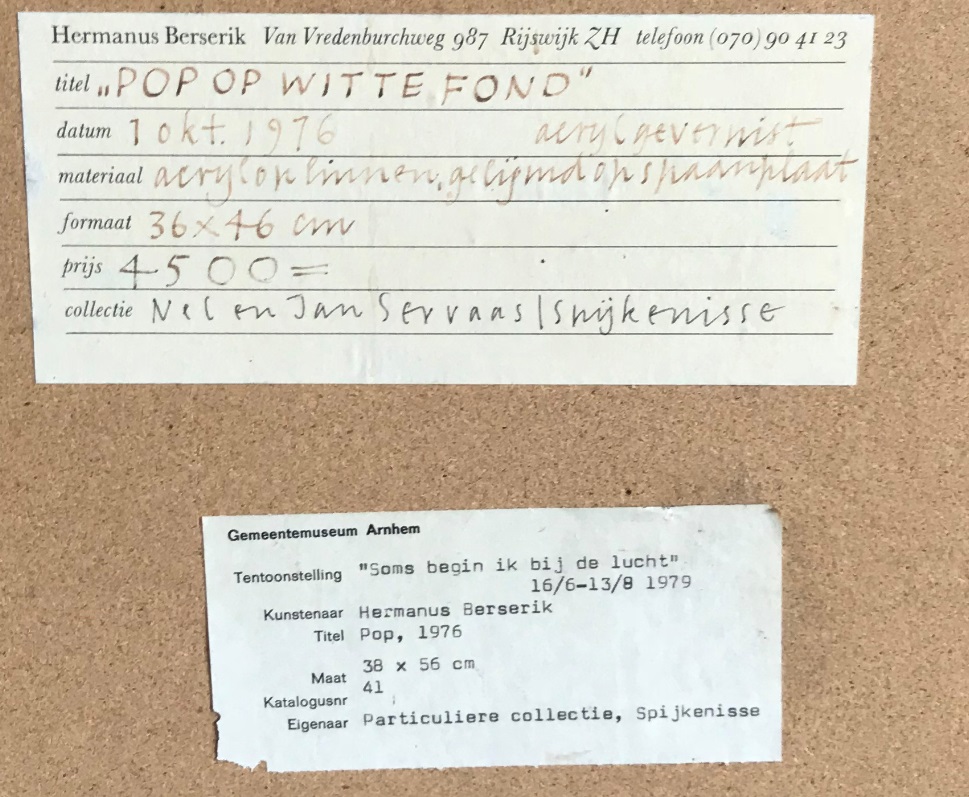 Hermanus Berserik Van Vredenburchweg 987 Rijswijk ZH telefoon (070) 90 41 23
titel „POP OP WITTE FOND"
datum 1 okt. 1976 acryl gevernist
materiaal acryl op linnen, gelijmd op spaanplaat
formaat 36 x 46 cm
prijs 4500=
collectie Nel en Jan Servaas / Spijkenisse
Gemeentemuseum Arnhem
Tentoonstelling "Soms begin ik bij de lucht"
16/6-13/8 1979
Kunstenaar Hermanus Berserik
Titel Pop, 1976
Maat 38 x 56 cm
Katalogusnr 41
Eigenaar Particuliere collectie, Spijkenisse